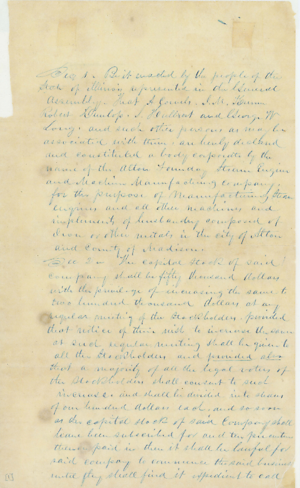 Sec 1. Be it enacted by the people of the
State of Illinois represented in the General
Assembly. That A
Robert Dunlap. and George W
Long and such other persons as may be
associated with them are hereby declared
and constituted a body corporate by the
name of the Alton Foundry Steam Engine
and Machine Manufacturing Company,
for the purpose of Manufacturing Steam
Engines and all other machines and
implements of husbandry composed of
Iron or other metals in the city of Alton
and County of Madison.
Sec 2. The Capital stock of said
company shall be fifty thousand dollars
with the privilege of increasing the same to
two hundred thousand dollars at any
regular meeting of the Stockholders provided
that notice of their wish to increase the same
at such regular meeting shall be given to
all the Stockholders and provided also
that a majority of all the legal votes of
the Stockholders shall consent to such
increase and shall be divided into shares
of one hundred dollars each, and so soon
as the capital stock of said Company shall
have been subscribed for and ten per centum
paid in then it shall be lawful for
said company to commence the said business
until they shall find it expedient to call